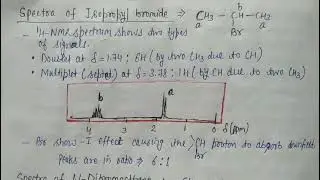 Spectra of Isopropyl bromide ⇒ CH₃ - CH - CH₃
a b a
Br
- ¹H-NMR spectrum shows two types
of signals.
• Doublet at δ = 1.74 ; 6H (by two CH₃ due to CH)
• Multiplet (septet) at δ = 3.78 ; 1H (by CH due to two CH₃)
b a
4 3 2 1 0 δ(ppm)
- Br show -I effect causing the >CH proton to absorb downfield
Br
Peaks are in ratio ⇒ 6:1